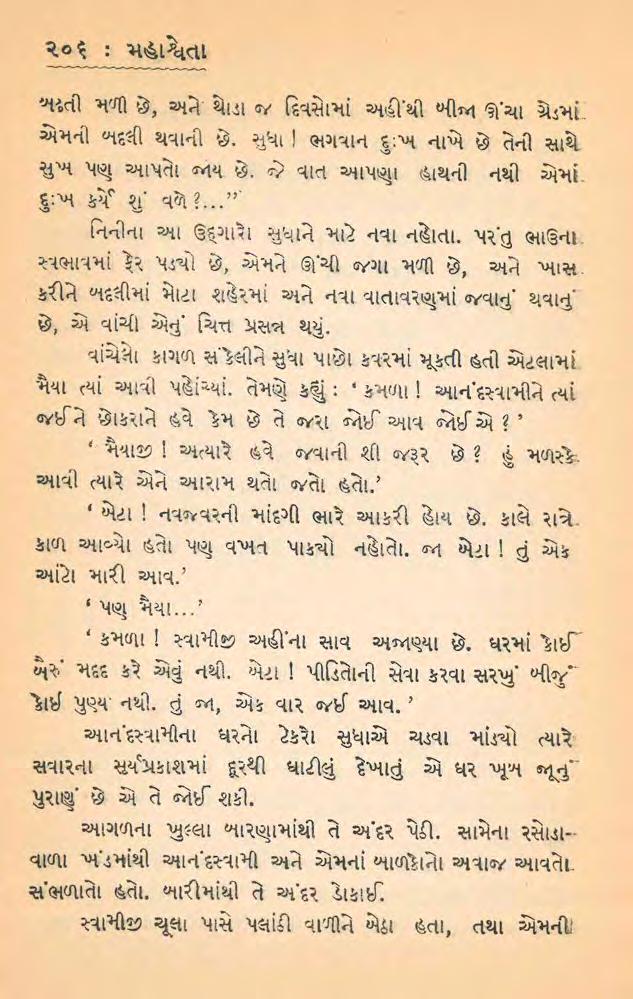 ૨૦૬ : મહાશ્વેતા
બઢતી મળી છે, અને થોડા જ દિવસોમાં અહીંથી બીજા ઊંચા ગ્રેડમાં
એમની બદલી થવાની છે. સુધા ! ભગવાન દુઃખ નાખે છે તેની સાથે
સુખ પણ આપતો જાય છે. જે વાત આપણા હાથની નથી એમાં
દુઃખ કર્યે શું વળે ?...”
નિનીના આ ઉદ્દગારો સુધાને માટે નવા નહોતા. પરંતુ ભાઉના
સ્વભાવમાં ફેર પડ્યો છે, એમને ઊંચી જગા મળી છે, અને ખાસ
કરીને બદલીમાં મોટા શહેરમાં અને નવા વાતાવરણમાં જવાનું થવાનું
છે, એ વાંચી એનું ચિત્ત પ્રસન્ન થયું.
વાંચેલો કાગળ સંકેલીને સુધા પાછો કવરમાં મૂકતી હતી એટલામાં
મૈયા ત્યાં આવી પહોંચ્યાં. તેમણે કહ્યું : ‘ કમળા ! આનંદસ્વામીને ત્યાં
જઈને છોકરાને હવે કેમ છે તે જરા જોઈ આવ જોઈએ ? ’
‘ મૈયાજી ! અત્યારે હવે જવાની શી જરૂર છે ? હું મળસ્કે
આવી ત્યારે એને આરામ થતો જતો હતો.’
‘ બેટા ! નવજ્વરની માંદગી ભારે આકરી હોય છે. કાલે રાત્રે
કાળ આવ્યો હતો પણ વખત પાક્યો નહોતો. જા બેટા ! તું એક
આંટો મારી આવ.’
‘ પણ મૈયા...’
‘ કમળા ! સ્વામીજી અહીંના સાવ અજાણ્યા છે. ઘરમાં કોઈ
બૈરું મદદ કરે એવું નથી. બેટા ! પીડિતોની સેવા કરવા સરખું બીજું
કોઈ પુણ્ય નથી. તું જા, એક વાર જઈ આવ. ’
આનંદસ્વામીના ઘરનો ટેકરો સુધાએ ચડવા માંડ્યો ત્યારે
સવારના સૂર્યપ્રકાશમાં દૂરથી ઘાટીલું દેખાતું એ ઘર ખૂબ જૂનું
પુરાણું છે એ તે જોઈ શકી.
આગળના ખુલ્લા બારણામાંથી તે અંદર પેઠી. સામેના રસોડા-
વાળા ખંડમાંથી આનંદસ્વામી અને એમનાં બાળકોનો અવાજ આવતો
સંભળાતો હતો. બારીમાંથી તે અંદર ડોકાઈ.
સ્વામીજી ચૂલા પાસે પલાંઠી વાળીને બેઠા હતા, તથા એમની